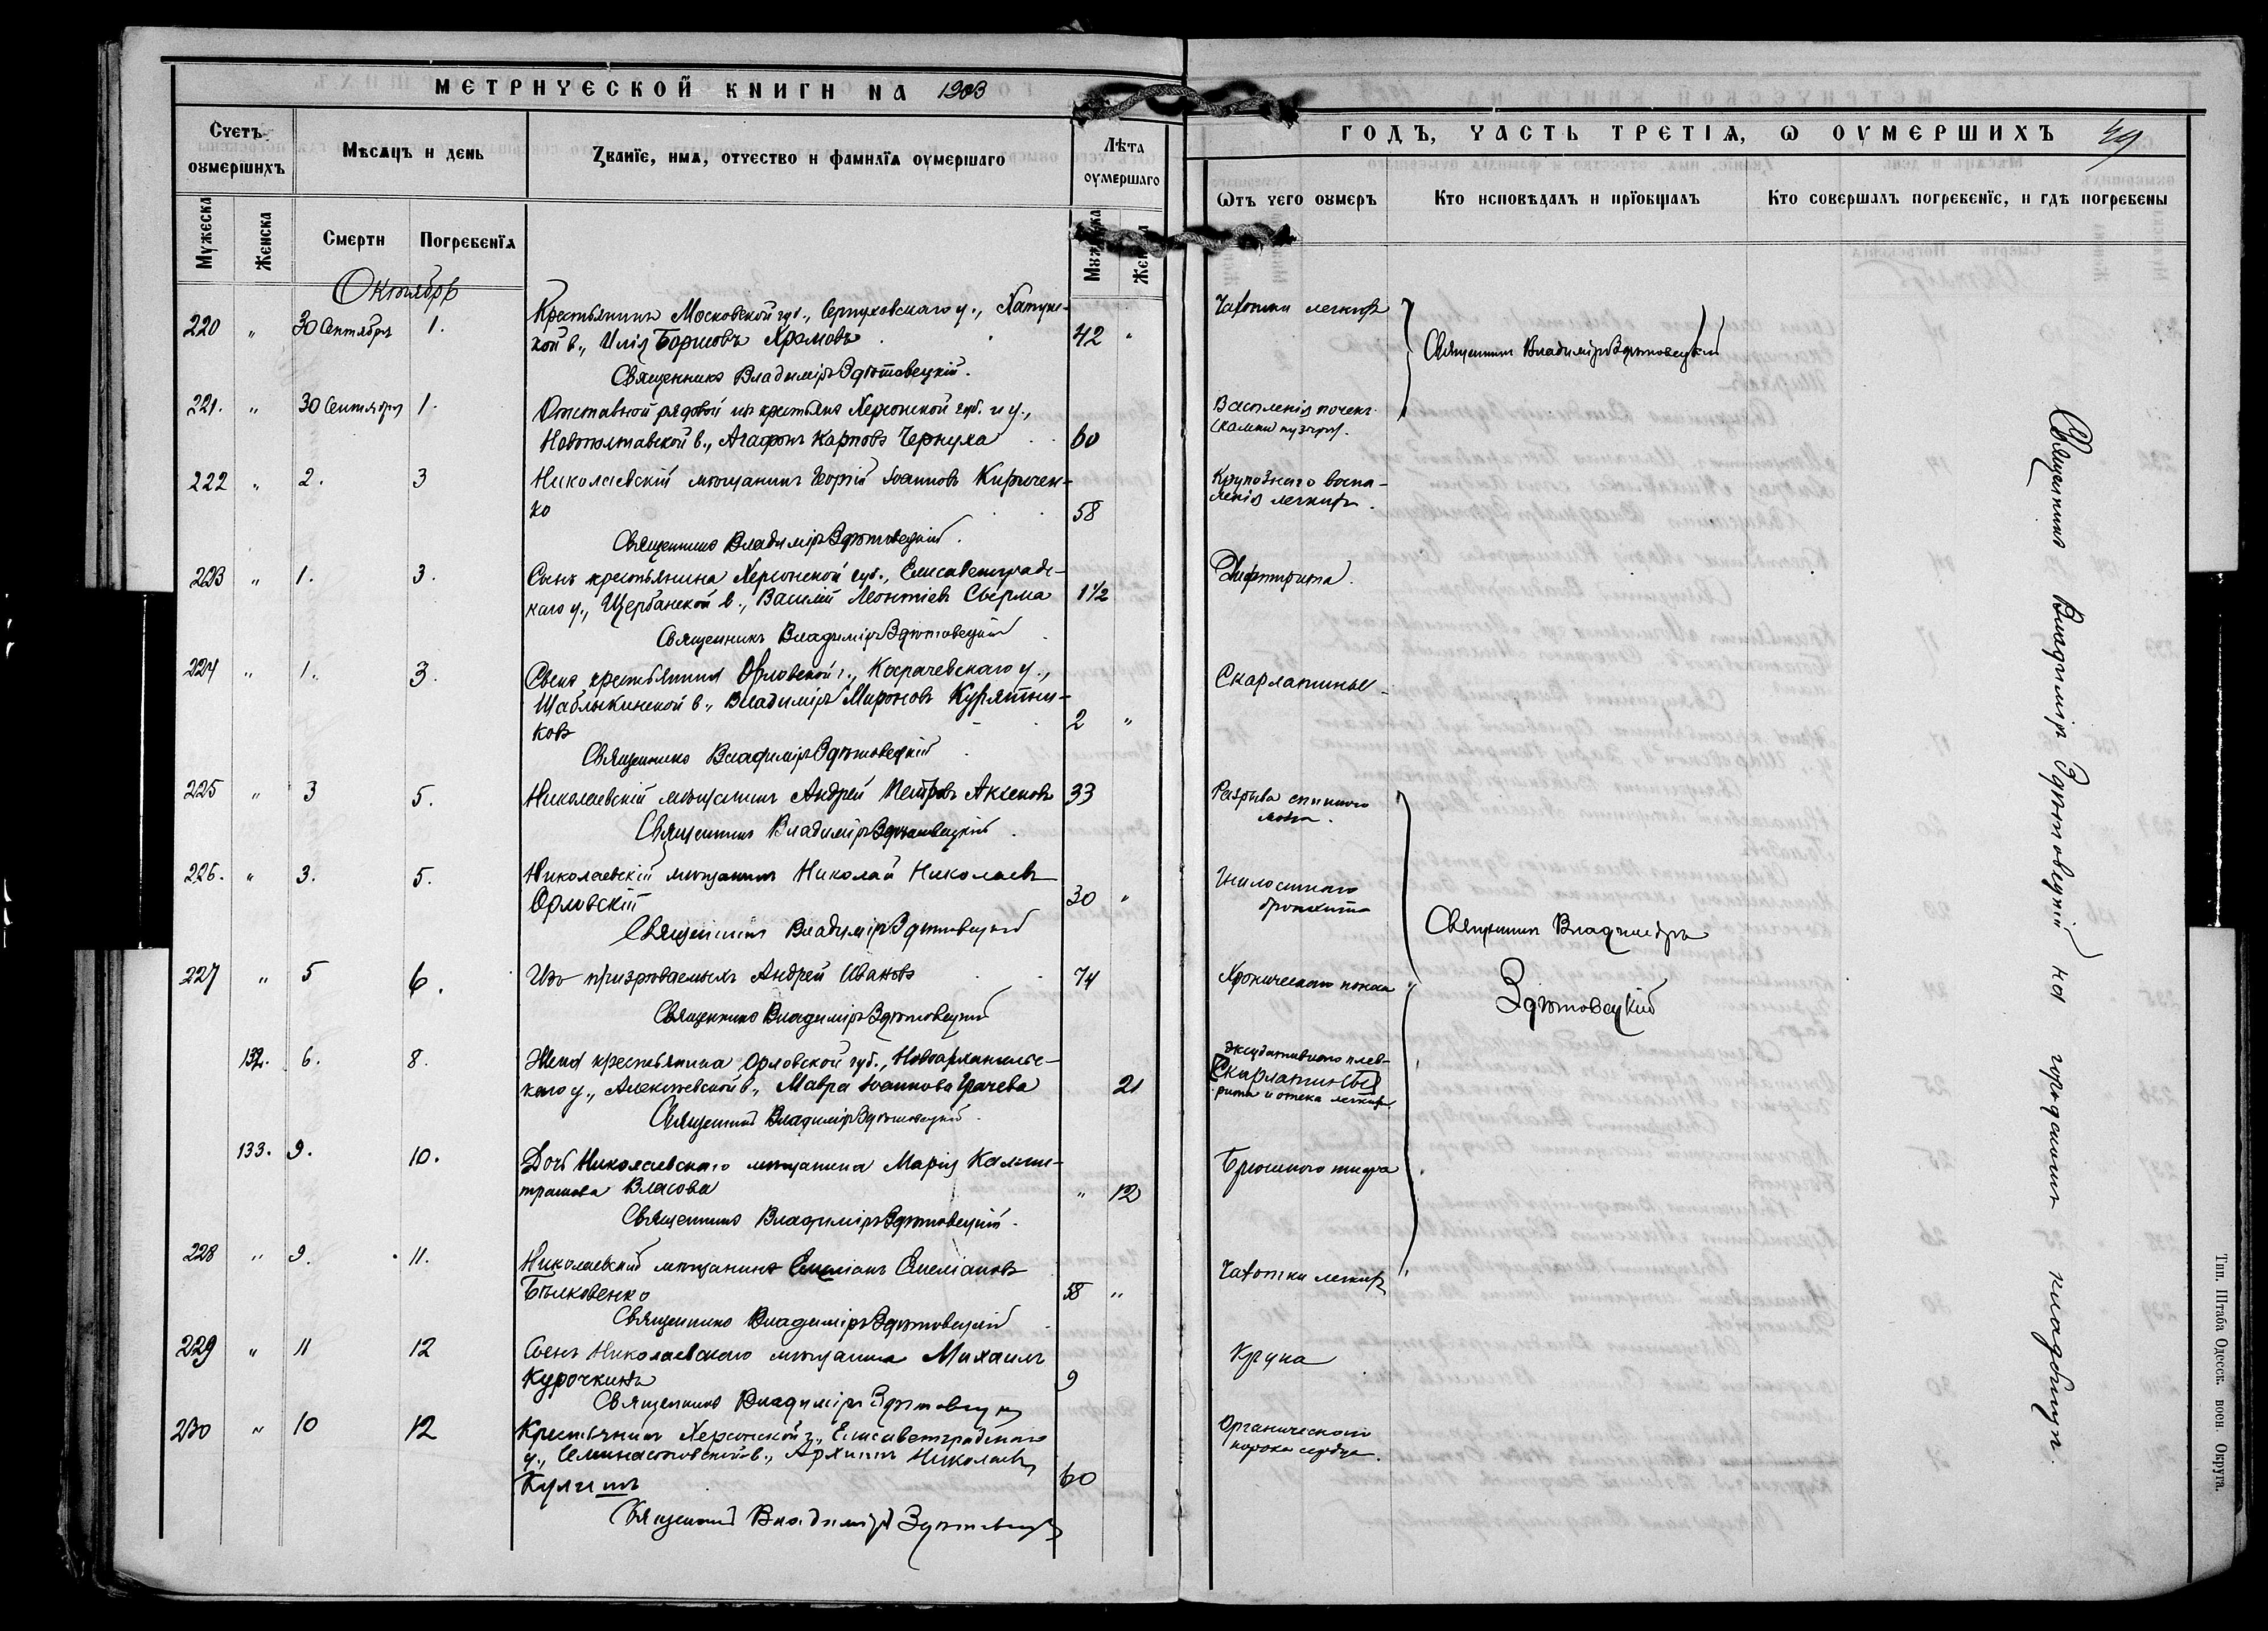 МЕТРИЧЕСКОЙ КНИГИ НА 1903
Счетъ оумершихъ
Мѣсяцъ и день
Званїе, имя, отчество и фамилїя оумершаго
Лѣта оумершаго
Мужеска
Женска
Смерти
Погребенїя
Мужеска
Октябрь
220 " 30 Сентября 1. Крестьянинъ Московской губ., Серпуховскаго у., Хатунс-
кой в., Илія Борисовъ Храмовъ 42 "
Священникъ Владиміръ Здѣтовецкій.
221. " 30 Сентября 1. Отставной рядовой изъ крестьянъ Херсонской губ. и у.,
Новополтавской в., Агафонъ Карповъ Чернуха 60
222 " 2. 3 Николаевскій мѣщанинъ Георгій Іоанновъ Кириченко-
ко 58
Священникъ Владиміръ Здѣтовецкій.
223 " 1. 3. Сынъ крестьянина Херсонской губ., Елисаветградс-
каго у., Щербанской в., Василій Леонтіевъ Сырма 1½
Священникъ Владиміръ Здѣтовецкій
224 " 1. 3. Сынъ крестьянина Орловской г., Карачевскаго у.,
Шаблыкинской в., Владиміръ Мироновъ Курятни-
ковъ 2 "
Священникъ Владиміръ Здѣтовецкій
225 " 3 5. Николаевскій мѣщанинъ Андрей Петровъ Аксеновъ 33
Священникъ Владиміръ Здѣтовецкій
226. " 3. 5. Николаевскій мѣщанинъ Николай Николаевъ
Орловскій 30 "
Священникъ Владиміръ Здѣтовецкій
227 " 5 6. Изъ призрѣваемыхъ Андрей Ивановъ 74
Священникъ Владиміръ Здѣтовецкій
132. 6. 8. Жена крестьянина Орловской губ., Новоархангельс-
каго у., Алексѣевской в., Мавра Іоаннова Грачева 21
Священникъ Владиміръ Здѣтовецкій.
133. 9. 10. Дочь Николаевскаго мѣщанина Марія
Власова " 12
Священникъ Владиміръ Здѣтовецкій.
228 " 9. 11. Николаевскій мѣщанинъ Емеліанъ Емеліановъ
Бѣлковенко 58 "
Священникъ Владиміръ Здѣтовецкій
229 " 11 12 Сынъ Николаевскаго мѣщанина Михаилъ
Курочкинъ 9
Священникъ Владиміръ Здѣтовецкій
230 " 10 12 Крестьянинъ Херсонской г., Елисаветградскаго
у., Архипъ Николаевъ
60
Священникъ Владиміръ Здѣтовецкій
ГОДЪ, ЧАСТЬ ТРЕТІЯ, Ѡ ОУМЕРШИХЪ 49
Ѿтъ чего оумеръ
Кто исповѣдалъ и прїобщалъ
Кто совершалъ погребенїе, и гдѣ погребены
Чахотки легкихъ
Священникъ Владиміръ Здѣтовецкій
Воспаленія почекъ
(камни пузыря).
Крупознаго воспа-
ленія легкихъ.
Дифтерита.
Скарлатины
Разрыва спинного
мозга.
Гнилостнаго
бронхита
Священникъ Владиміръ
Здѣтовецкій
Хроническаго поноса
Эксудативнаго плев-
Скарлатины
рита и отека легкихъ
Брюшного тифа
Чахотки легкихъ
Крупа
Органическаго
порока сердца.
Священникъ Владиміръ Здѣтовецкій на городскомъ кладбищѣ.
Тип. Штаба Одесск. воен. Округа.